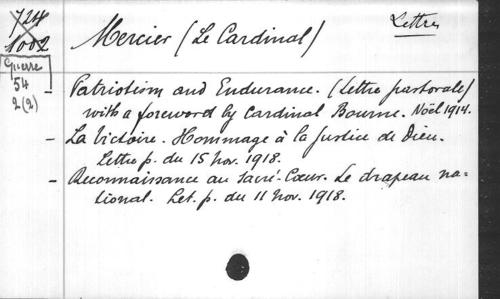 724
1002
Guerre
54
2(2)
Mercier (Le Cardinal)
Lettres
- Patriotism and Endurance. (Lettre pastorale)
with a foreword by Cardinal Bourne. Noël 1914.
- La Victoire. Hommage à la Justice de Dieu.
Lettre p. du 15 nov. 1918.
- Reconnaissance au Sacré-Cœur. Le drapeau na-
tional. Let. p. du 11 nov. 1918.